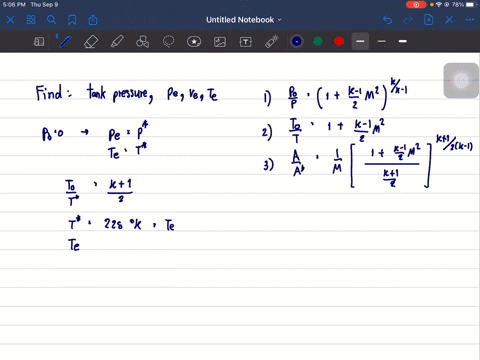 5:06 PM Thu Sep 9
78%
Untitled Notebook
Find: tank pressure, pe, ve, Te
Pb=0 → Pe = P*
Te = T*
T0/T* = k+1/2
T* = 228 °K = Te
Te
1) P0/P = (1 + k-1/2 M²)^k/k-1
2) T0/T = 1 + k-1/2 M²
3) A/A* = 1/M [1 + k-1/2 M² / k+1/2]^k+1/2(k-1)